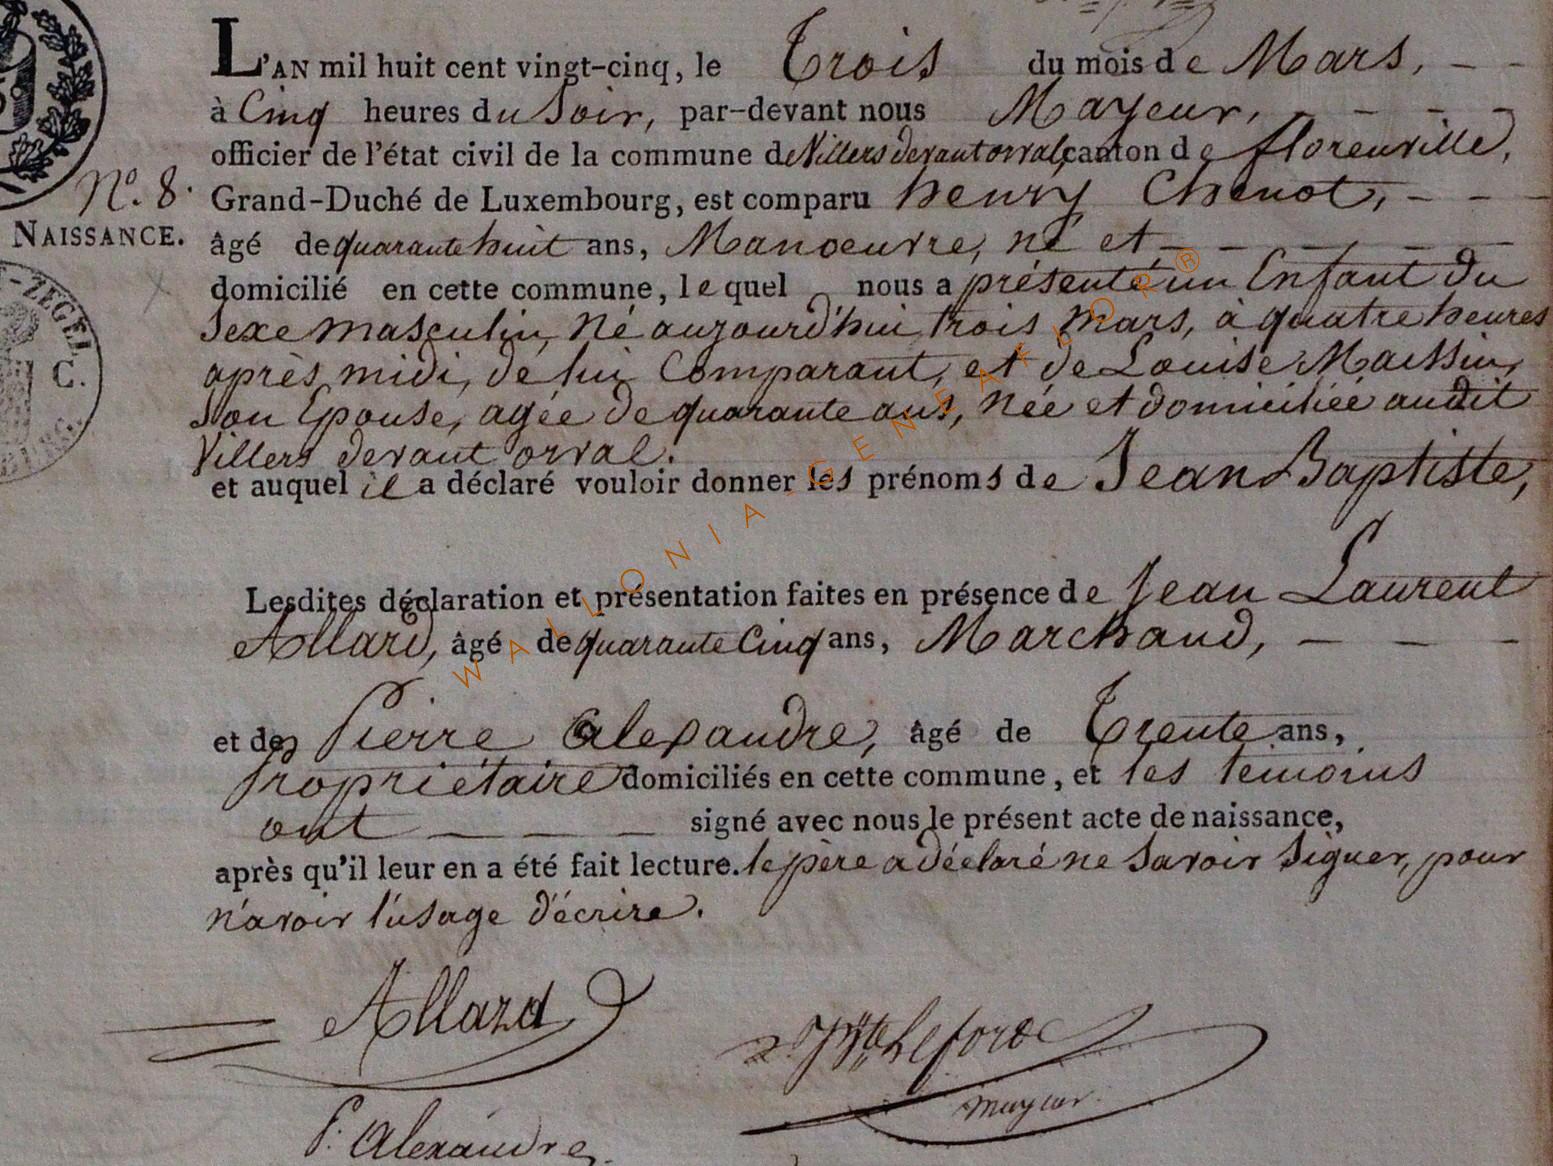 L'AN mil huit cent vingt-cinq, le Trois du mois de Mars,
à Cinq heures du Soir, par-devant nous Mayeur,
officier de l'état civil de la commune de Villers devant orval, canton de florenville,
N.o 8. Grand-Duché de Luxembourg, est comparu henry Chenot,
NAISSANCE. âgé de quarante huit ans, Manoeuvre, né et
domicilié en cette commune, lequel nous a présenté un Enfant du
Sexe masculin, Né aujourd'hui trois Mars, à quatre heures
après midi, de lui Comparant, et de Louise Maissin,
Son Epouse, agée de quarante ans, Née et domiciliée audit
Villers devant orval.
et auquel il a déclaré vouloir donner les prénoms de Jean Baptiste,
Lesdites déclaration et présentation faites en présence de Jean Laurent
Allard, âgé de quarante Cinq ans, Marchand,
et de Pierre Alexandre, âgé de Trente ans,
Propriétaire domiciliés en cette commune, et les témoins
ont signé avec nous le présent acte de naissance,
après qu'il leur en a été fait lecture. le père a déclaré ne Savoir Signer, pour
n'avoir l'usage d'écrire.
Allard
Lefort
mayeur
P. Alexandre
-ZEGEL
C.
WALLONIA-GENEAKOR ®